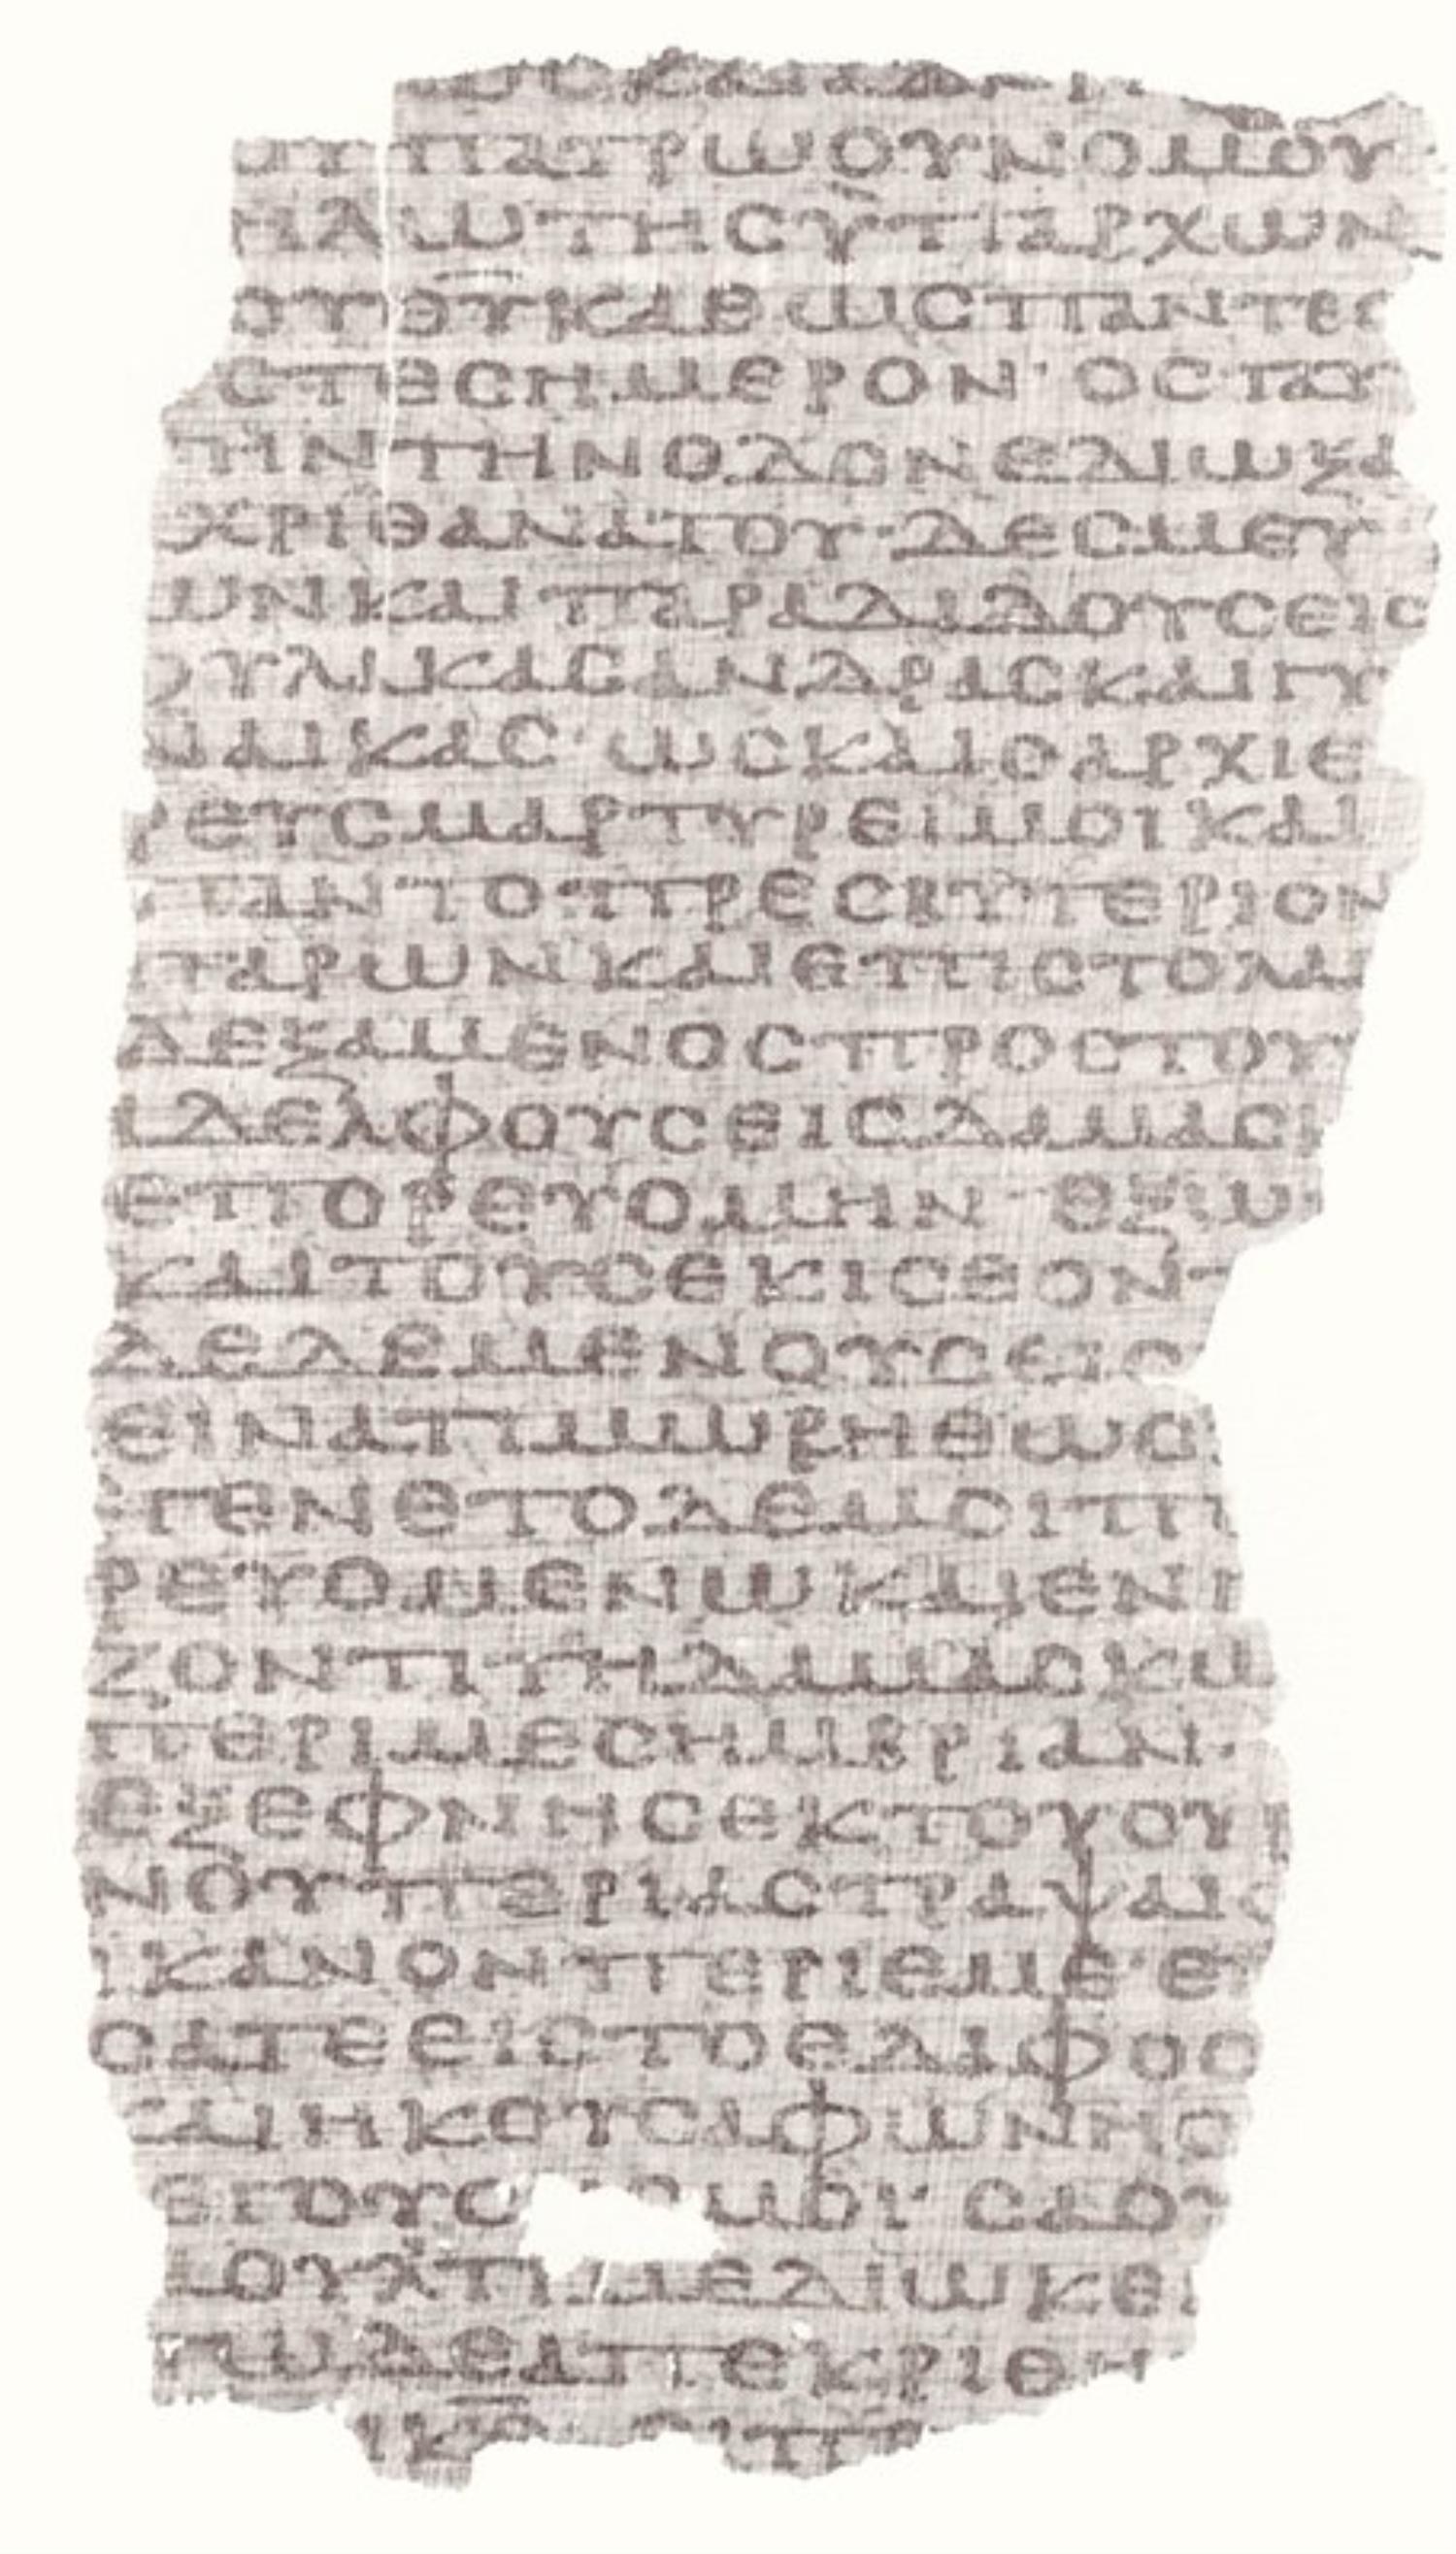 ΟΥ ΠΑΤΡΩΟΥ ΝΟΜΟΥ
ΗΛΩΤΗΣ ΥΠΑΡΧΩΝ
ΟΥ ΘΥ ΚΑΘΩΣ ΠΑΝΤΕΣ
ΣΤΕ ΣΗΜΕΡΟΝ· ΟΣ ΤΑΥ
ΤΗΝ ΤΗΝ ΟΔΟΝ ΕΔΙΩΞΑ
ΧΡΙ ΘΑΝΑΤΟΥ· ΔΕΣΜΕΥ
ΩΝ ΚΑΙ ΠΑΡΑΔΙΔΟΥΣ ΕΙΣ
ΦΥΛΙΚΑΣ ΑΝΔΡΑΣ ΚΑΙ ΓΥ
ΝΑΙΚΑΣ· ΩΣ ΚΑΙ Ο ΑΡΧΙΕ
ΡΕΥΣ ΜΑΡΤΥΡΕΙ ΜΟΙ ΚΑΙ
ΠΑΝ ΤΟ ΠΡΕΣΒΥΤΕΡΙΟΝ
ΠΑΡ ΩΝ ΚΑΙ ΕΠΙΣΤΟΛΑ
ΔΕΞΑΜΕΝΟΣ ΠΡΟΣ ΤΟΥ
ΑΔΕΛΦΟΥΣ ΕΙΣ ΔΑΜΑΣΚ
ΕΠΟΡΕΥΟΜΗΝ
ΚΑΙ ΤΟΥΣ ΕΚΙΣΕ ΟΝΤ
ΔΕΔΕΜΕΝΟΥΣ ΕΙΣ
ΕΙΝΑ ΤΙΜΩΡΗΘΩΣΙ
ΕΓΕΝΕΤΟ ΔΕ ΜΟΙ ΠΟ
ΡΕΥΟΜΕΝΩ ΚΑΙ ΕΝΓ
ΖΟΝΤΙ ΤΗ ΔΑΜΑΣΚΩ
ΠΕΡΙ ΜΕΣΗΜΒΡΙΑΝ·
ΕΞΕΦΝΗΣ ΕΚ ΤΟΥ ΟΥΡ
ΝΟΥ ΠΕΡΙΑΣΤΡΑΨΑΙ Φ
ΙΚΑΝΟΝ ΠΕΡΙ ΕΜΕ· ΕΠ
ΣΑ ΤΕ ΕΙΣ ΤΟ ΕΔΑΦΟΣ
ΚΑΙ ΗΚΟΥΣΑ ΦΩΝΗΣ
ΛΕΓΟΥΣ ΜΟΙ· ΣΑΟΥ
ΣΑΟΥΛ ΤΙ ΜΕ ΔΙΩΚΕΙ
ΓΩ ΔΕ ΑΠΕΚΡΙΘΗ